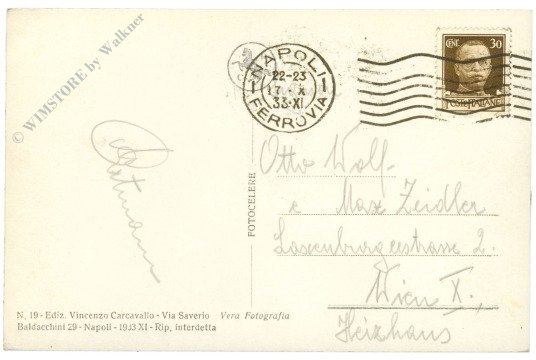 © WIMSTORE by Walkner
NAPOLI
22-23
17·X
33·XI
FERROVIA
CENT. 30
POSTE ITALIANE
Otto Wolf
c Max Zeidler
Laxenburgerstrasse 2.
Wien X.,
Heizhaus
FOTOCELERE
N. 19 - Ediz. Vincenzo Carcavallo - Via Saverio Vera Fotografia
Baldacchini 29 - Napoli - 1933 XI - Rip. interdetta